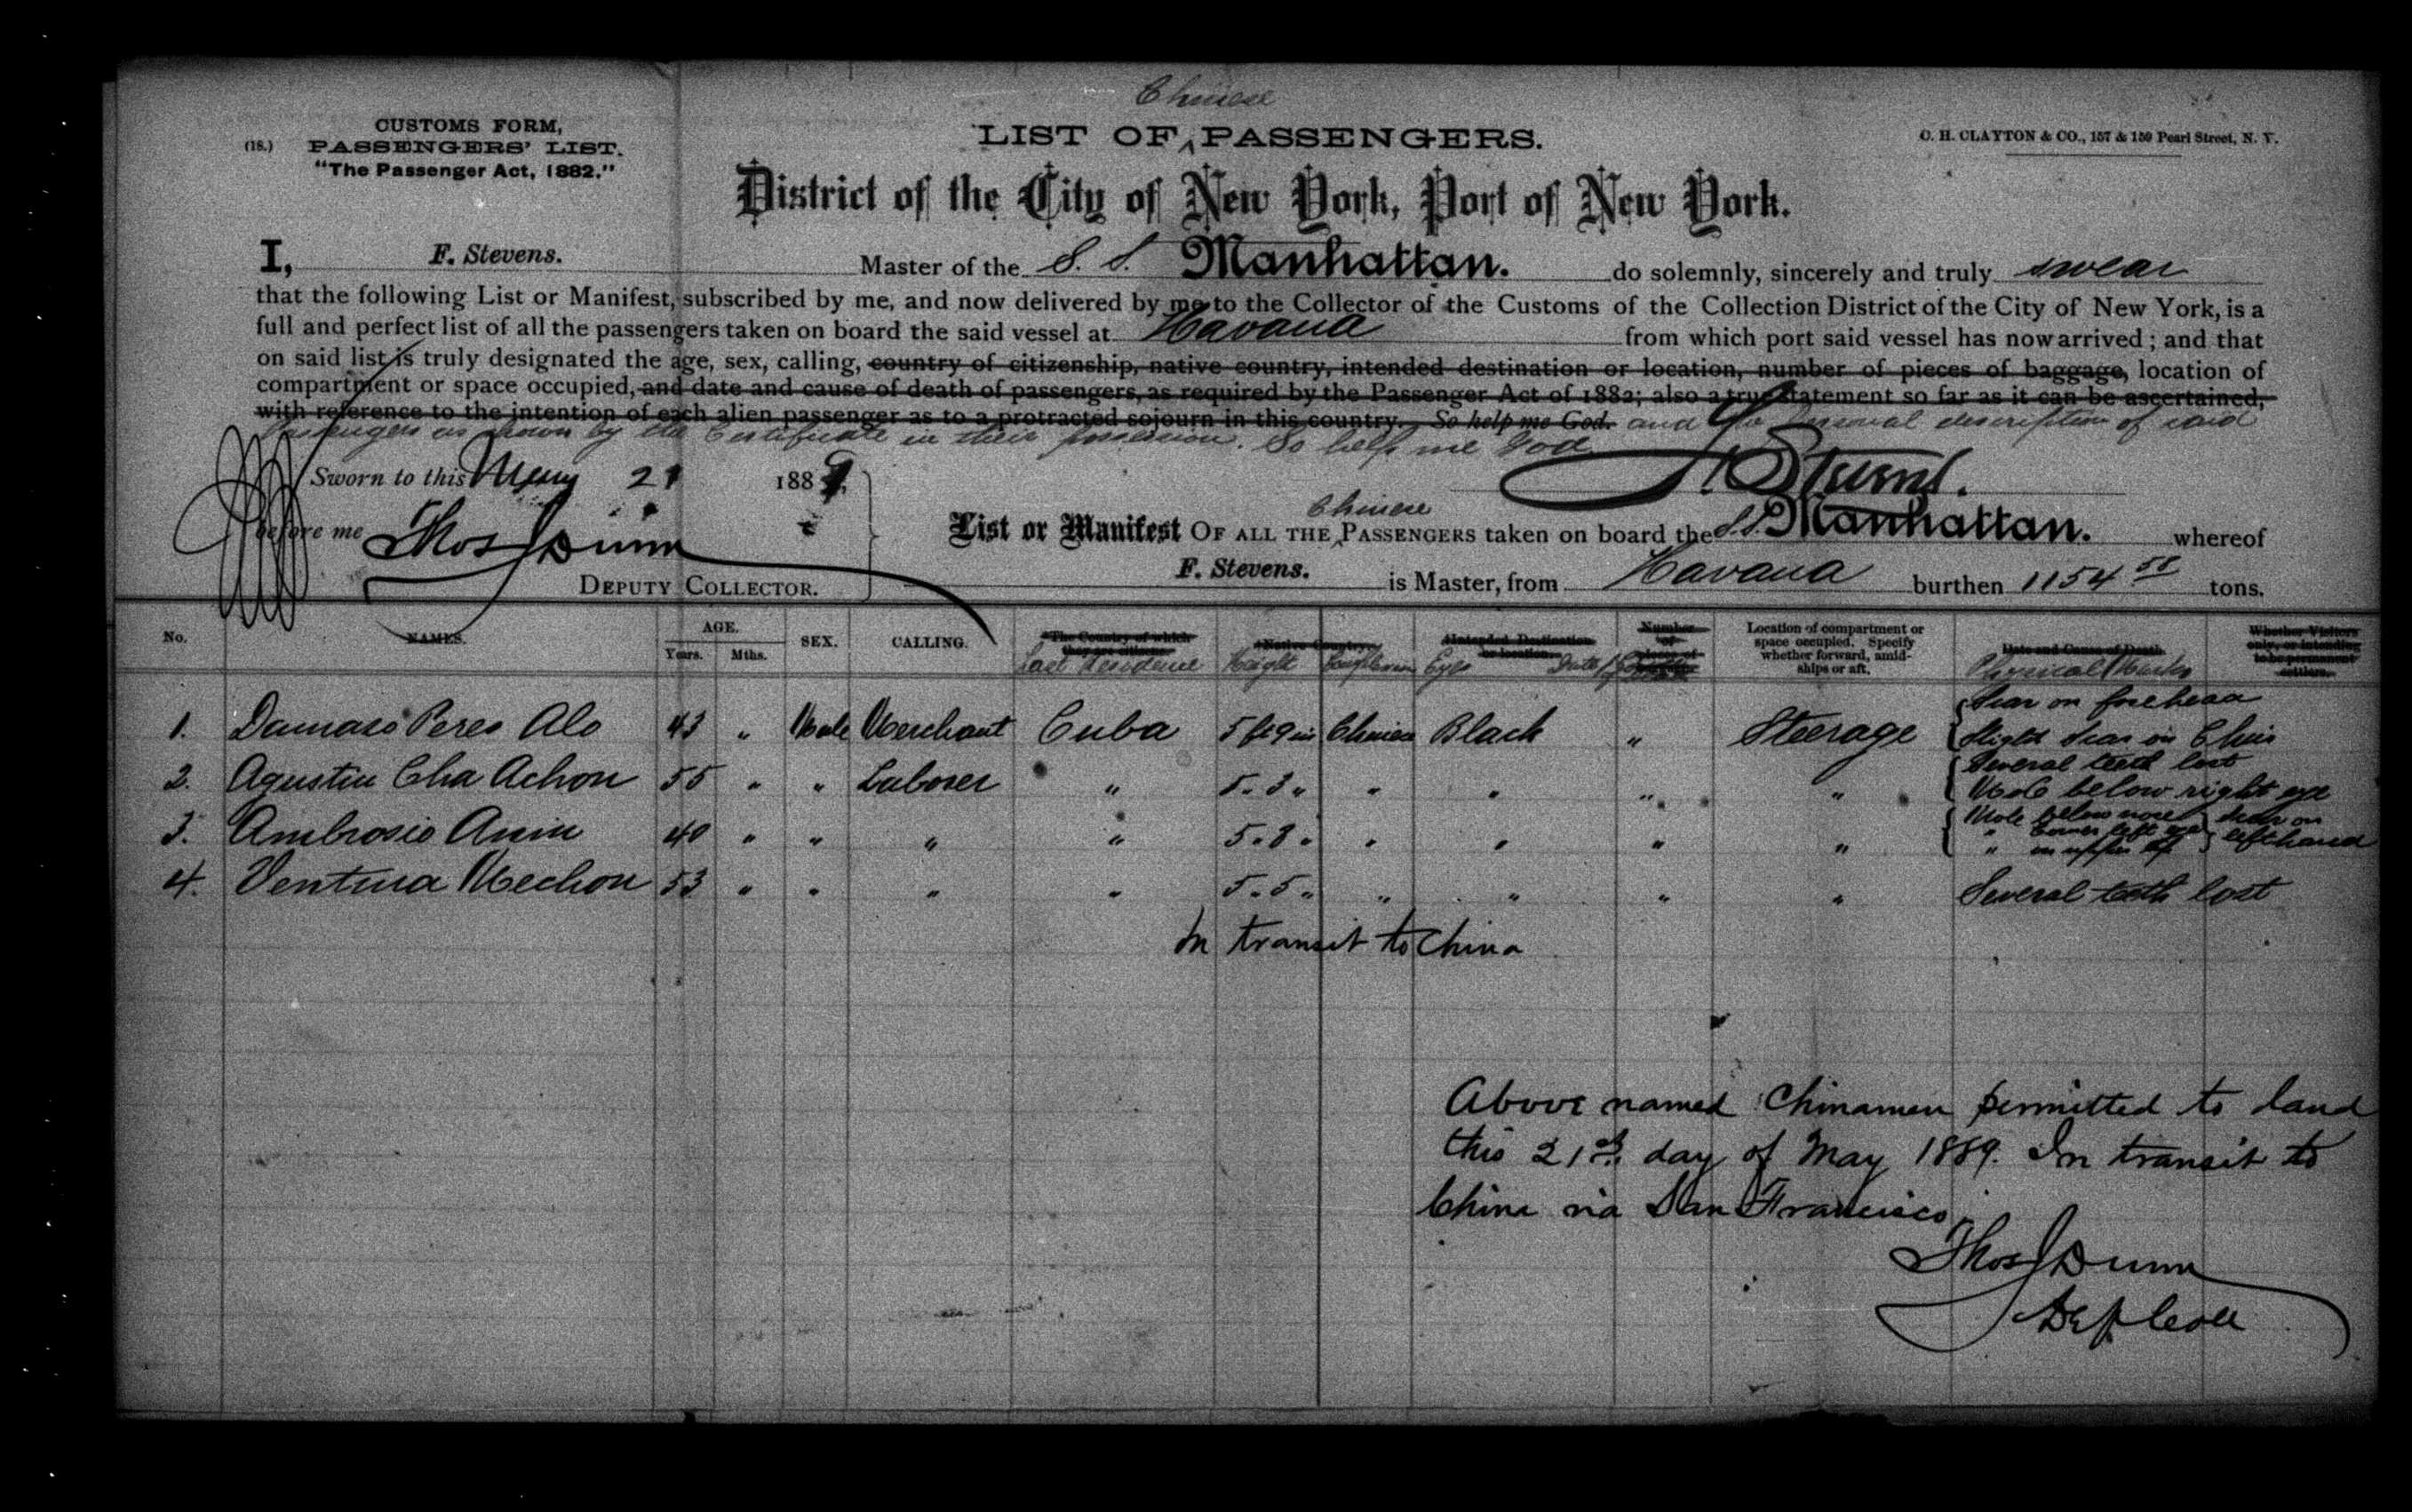 Chinese
CUSTOMS FORM,
(18.) PASSENGERS' LIST.
"The Passenger Act, 1882."
LIST OF ^ PASSENGERS.
C. H. CLAYTON & CO., 157 & 159 Pearl Street, N. Y.
District of the City of New York, Port of New York.
I, F. Stevens. Master of the S. S. Manhattan. do solemnly, sincerely and truly swear
that the following List or Manifest, subscribed by me, and now delivered by me to the Collector of the Customs of the Collection District of the City of New York, is a
full and perfect list of all the passengers taken on board the said vessel at Havana from which port said vessel has now arrived; and that
on said list is truly designated the age, sex, calling, country of citizenship, native country, intended destination or location, number of pieces of baggage, location of
compartment or space occupied, and date and cause of death of passengers, as required by the Passenger Act of 1882; also a true statement so far as it can be ascertained,
with reference to the intention of each alien passenger as to a protracted sojourn in this country. So help me God. and the personal description of said
Passengers as shown by the Certificate in their possession. So help me God
Sworn to this May 21 1889,
F. Stevens.
before me Thos J Dunn
DEPUTY COLLECTOR.
Chinese
List or Manifest OF ALL THE ^ PASSENGERS taken on board the S.S. Manhattan. whereof
F. Stevens. is Master, from Havana burthen 1154 tons.
No. NAMES. AGE. Years. Mths. SEX. CALLING. The Country of which they are citizens. Last Residence Native Country. Height Complexion Intended Destination or location. Eyes Date Number of pieces of Location of compartment or space occupied. Specify whether forward, amidships or aft. Date and Cause of Death Physical Marks Whether Visitors only, or intending to be permanent settlers.
1. Damaso Peres Alo 43 " Male Merchant Cuba 5 ft 9 in Chinese Black " Steerage Scar on forehead
Slight scar on Chin
2. Agustin Cha Achon 55 " " Laborer " 5. 3 " " " " " Several teeth lost
Mole below right eye
3. Ambrosio Asin 40 " " " " 5. 8 " " " " " Mole below nose scar on
" corner left eye left hand
" on upper lip
4. Ventura Mechon 53 " " " " 5. 5 " " " " " Several teeth lost
In transit to China
Above named Chinamen permitted to land
this 21st day of May 1889. In transit to
China via San Francisco.
Thos J Dunn
Dep Coll